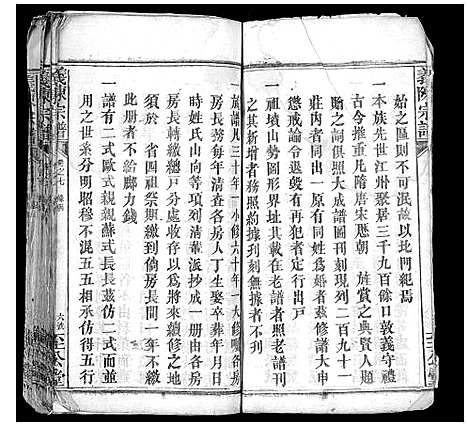 義陳宗譜
始之區則不可泯故以此門紀焉
一本族先世江州聚居三千九百餘口敦義守禮
古今推重凡隋唐宋歷朝 旌賞之典賢人題
詠之詞俱照大成譜圖刊刻現列二百九十一
莊內者同出一原有同姓為婚者茲修譜大申
懲戒論令退歇有再犯者定行出戶
一祖墳山勢形圖其載在老譜者照老譜刊
之其新增者務照約據刊刻無據者不刊
至公堂
一族譜凡三十年一小修六十年一大修囑各房
房長每年清查各房人丁生娶卒葬年月日
時姓氏山向等項列清彙派抄成一冊由各房
房長轉繳總戶分處收存以為將來續修之地
須於 省四祖祭期繳到倘房長間年不繳
此册者不给腳力錢
一譜有二式歐式親親蘇式長長茲仿二式而並
用之世系分明昭穆不混五五相承仿得五行
義陳宗譜
卷之七
至公堂